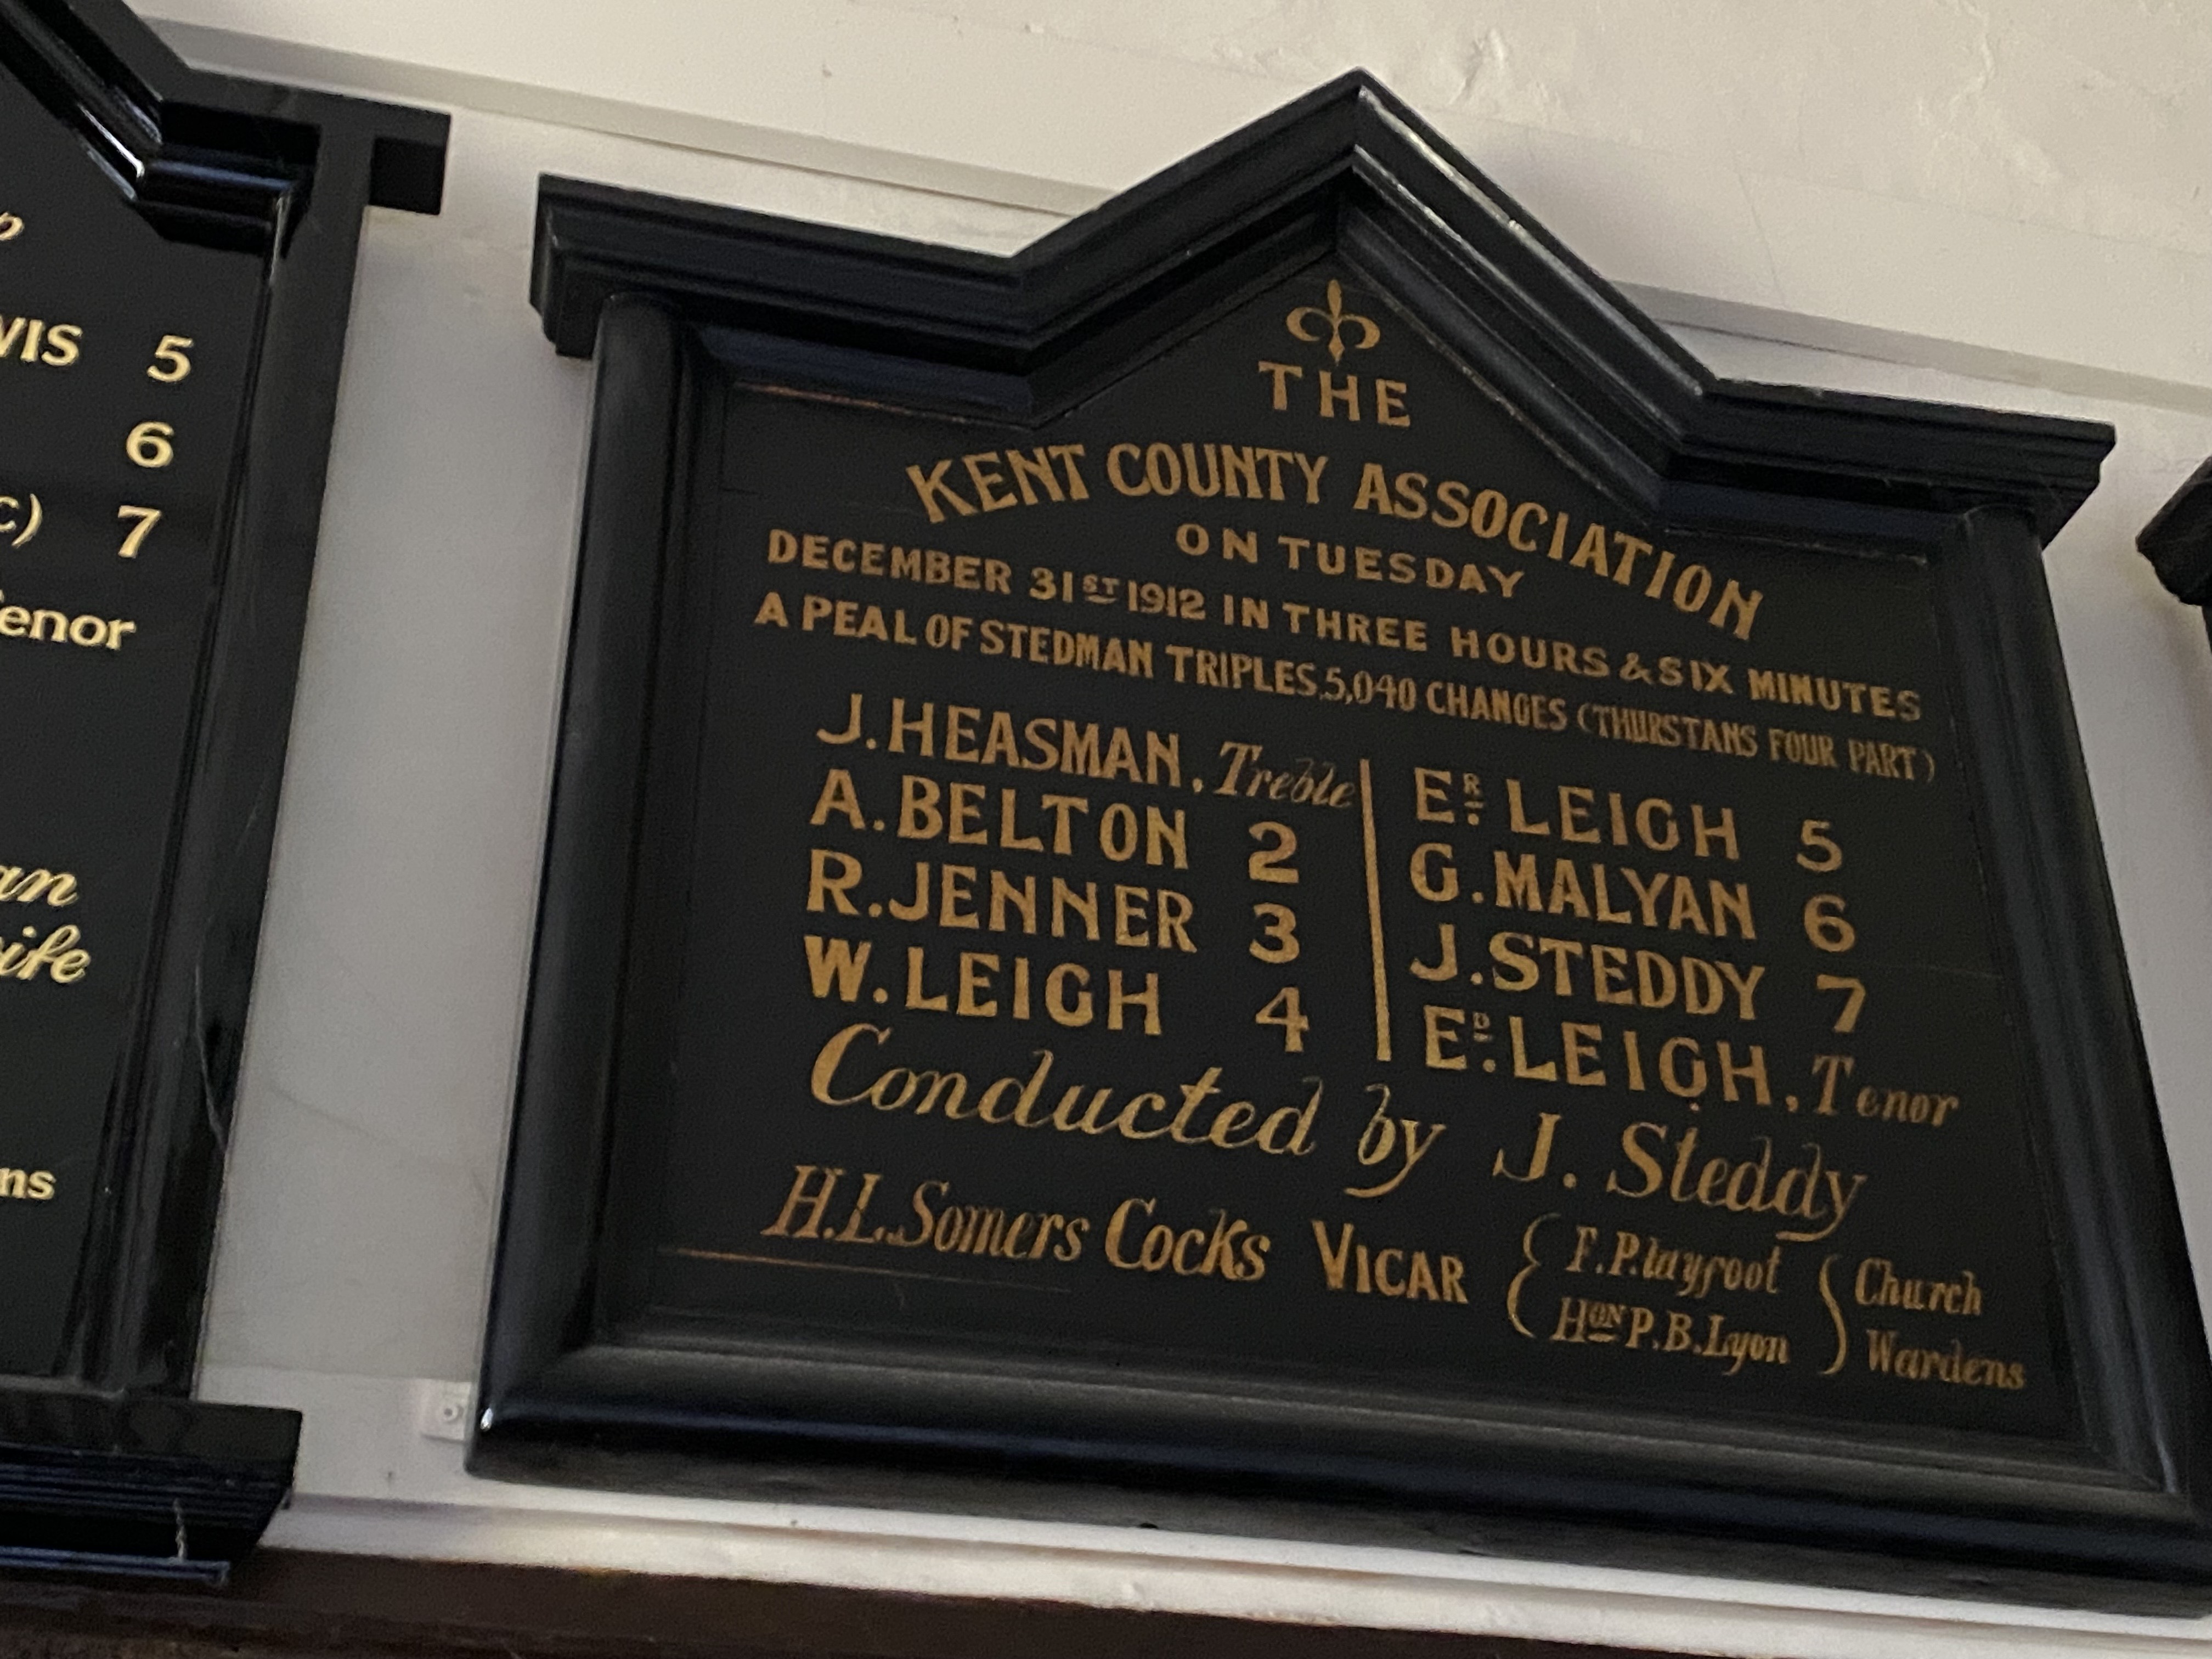 WIS 5
6
C) 7
Tenor
THE
KENT COUNTY ASSOCIATION
ON TUESDAY
DECEMBER 31ST 1912 IN THREE HOURS & SIX MINUTES
A PEAL OF STEDMAN TRIPLES, 5,040 CHANGES (THURSTANS FOUR PART)
J. HEASMAN, Treble
A. BELTON 2
R. JENNER 3
W. LEIGH 4
ER. LEIGH 5
G. MALYAN 6
J. STEDDY 7
ED. LEIGH, Tenor
Conducted by J. Steddy
H.L. Somers Cocks VICAR
F. Playfoot
HON P.B. Lyon
Church
Wardens